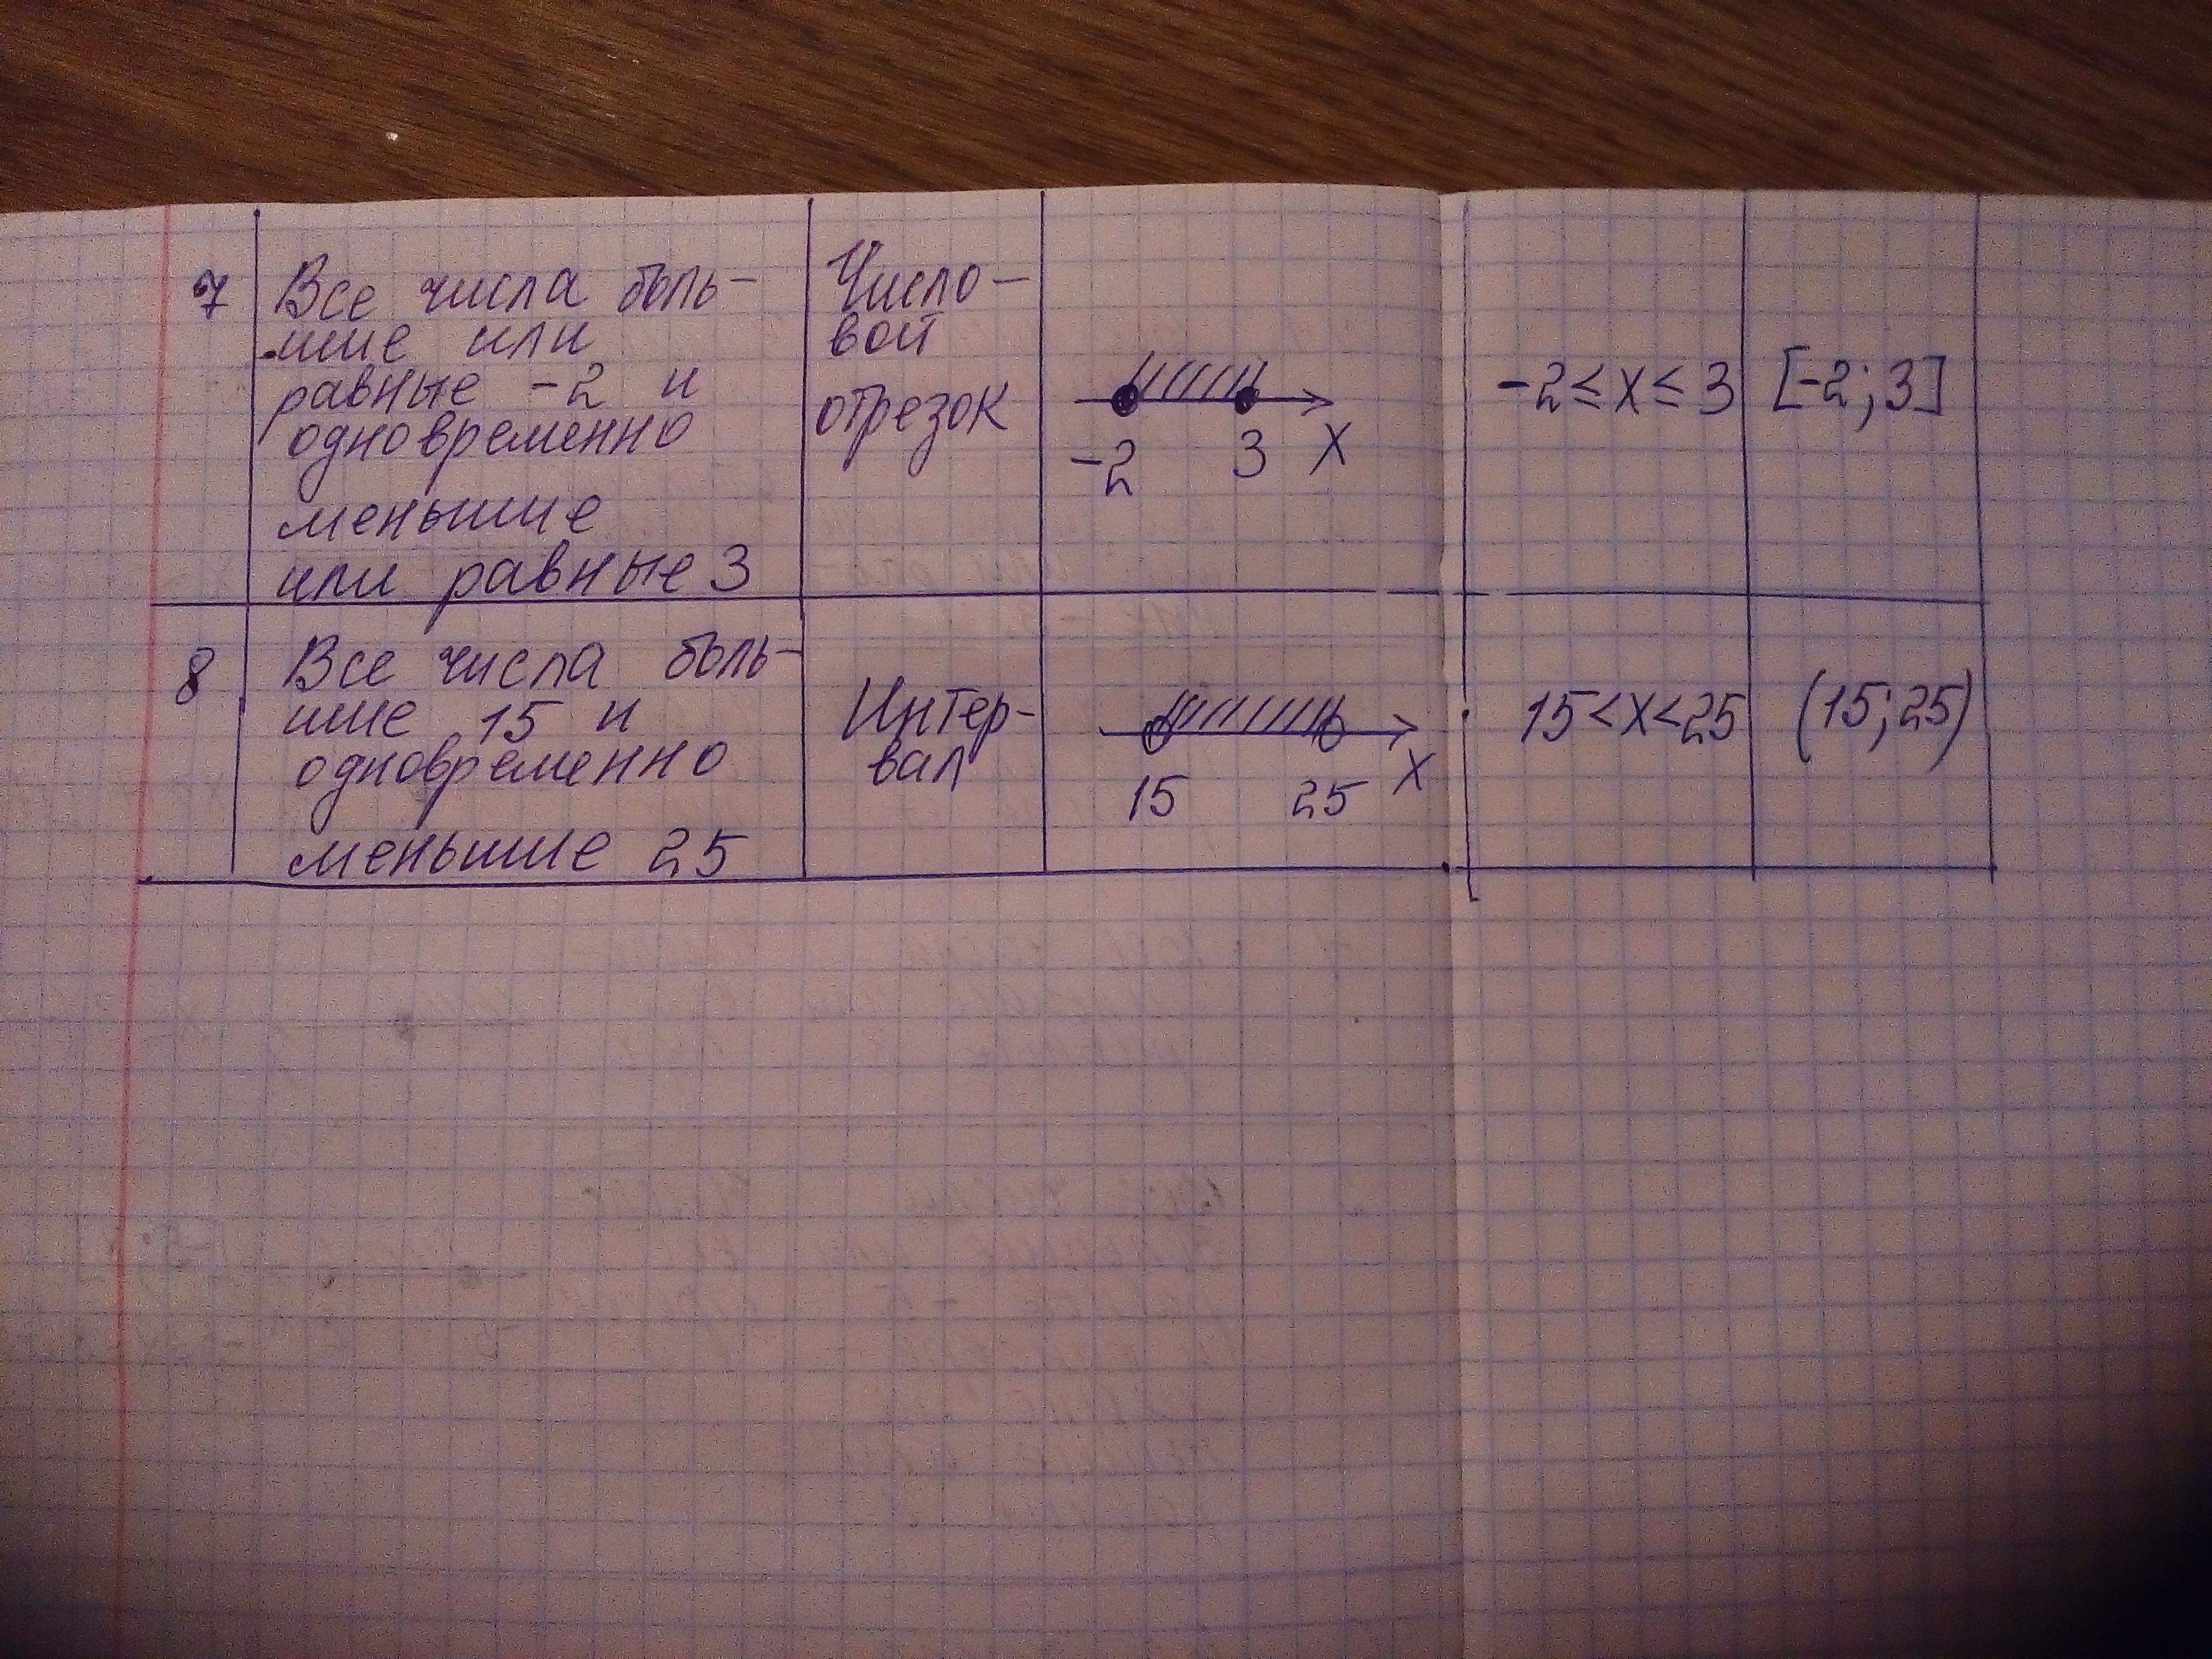 7
Все числа боль-
шие или
равные -2 и
одновременно
меньшие
или равные 3
Число-
вой
отрезок
-2 3 X
-2 ≤ x ≤ 3
[-2; 3]
8
Все числа боль-
шие 15 и
одновременно
меньшие 25
Интер-
вал
15 25 X
15 < x < 25
(15; 25)